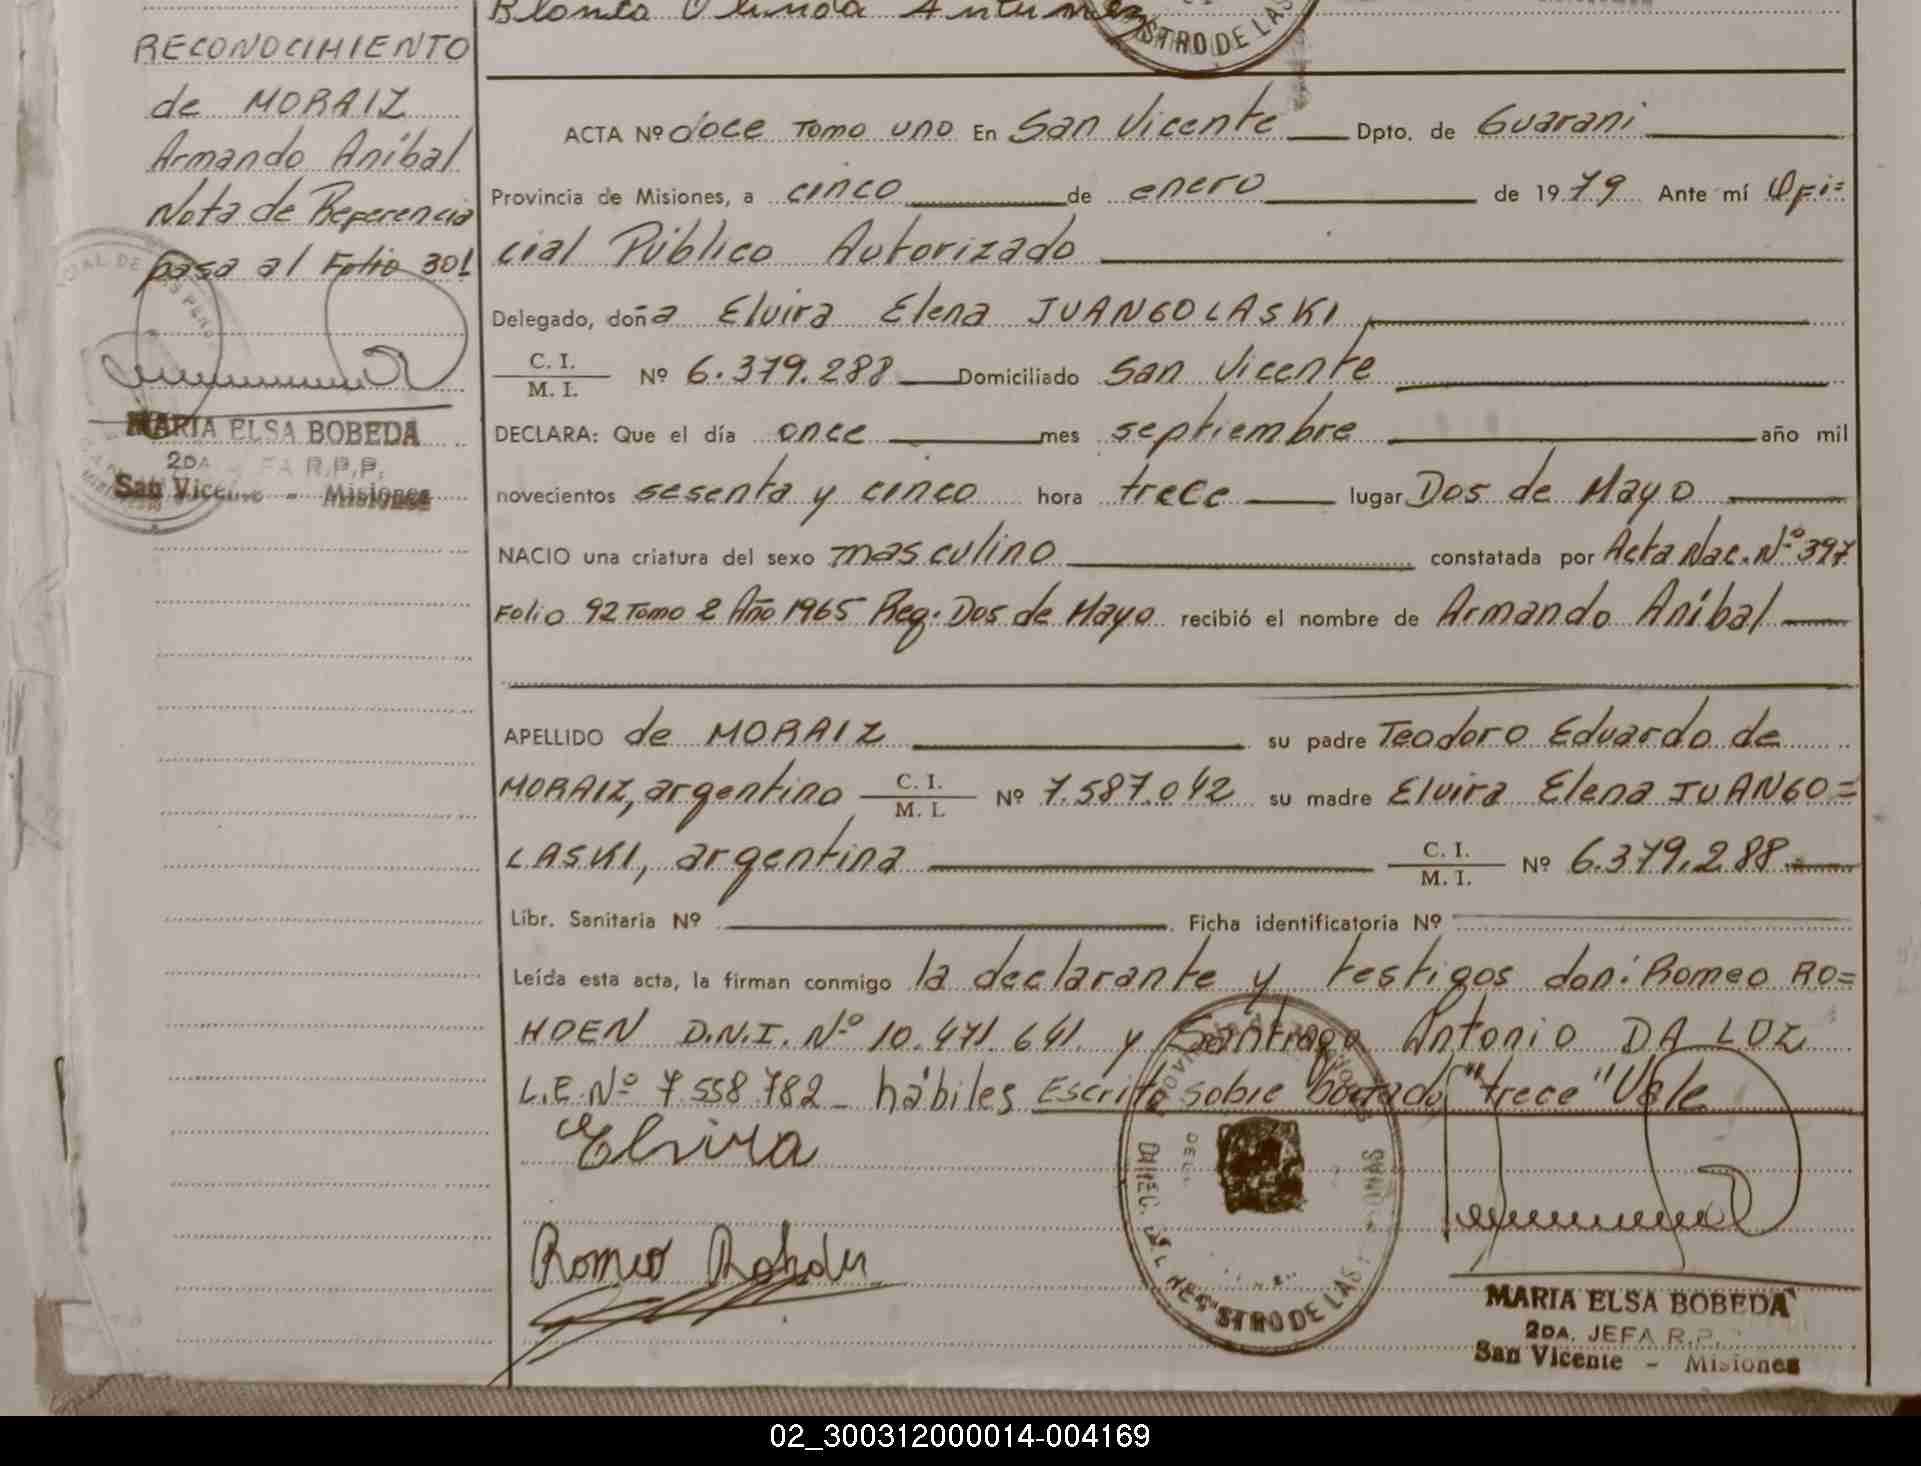 Blanca Olinda Antunez
STRO DE LAS
RECONOCIMIENTO
de MORAIZ
Armando Aníbal
Nota de Referencia
pasa al Folio 301
MARIA ELSA BOBEDA
2DA JEFA R.P.P.
San Vicente - Misiones
ACTA Nº doce Tomo uno En San Vicente Dpto. de Guaraní
Provincia de Misiones, a cinco de enero de 1979 Ante mí Ofi=
cial Público Autorizado
Delegado, doña Elvira Elena JUANGOLASKI
C. I.
M. I. Nº 6.379.288 Domiciliado San Vicente
DECLARA: Que el día once mes septiembre año mil
novecientos sesenta y cinco hora trece lugar Dos de Mayo
NACIO una criatura del sexo masculino constatada por Acta Nac. Nº 397
Folio 92 Tomo 2 Año 1965 Reg. Dos de Mayo recibió el nombre de Armando Aníbal
APELLIDO de MORAIZ su padre Teodoro Eduardo de
MORAIZ, argentino C. I. M. I. Nº 7.587.042 su madre Elvira Elena JUANGO=
LASKI, argentina C. I. M. I. Nº 6.379.288
Libr. Sanitaria Nº Ficha identificatoria Nº
Leída esta acta, la firman conmigo la declarante y testigos don: Romeo RO=
HDEN D.N.I. Nº 10.471.641 y Santiago Antonio DA LUZ
L.E. Nº 7.558.782 hábiles Escrito sobre borrado "trece" Vale
Elvira
Romeo Rohden
DIREC. DEL REGISTRO DE LAS
MARIA ELSA BOBEDA
2DA. JEFA R.P.
San Vicente - Misiones
02_300312000014-004169